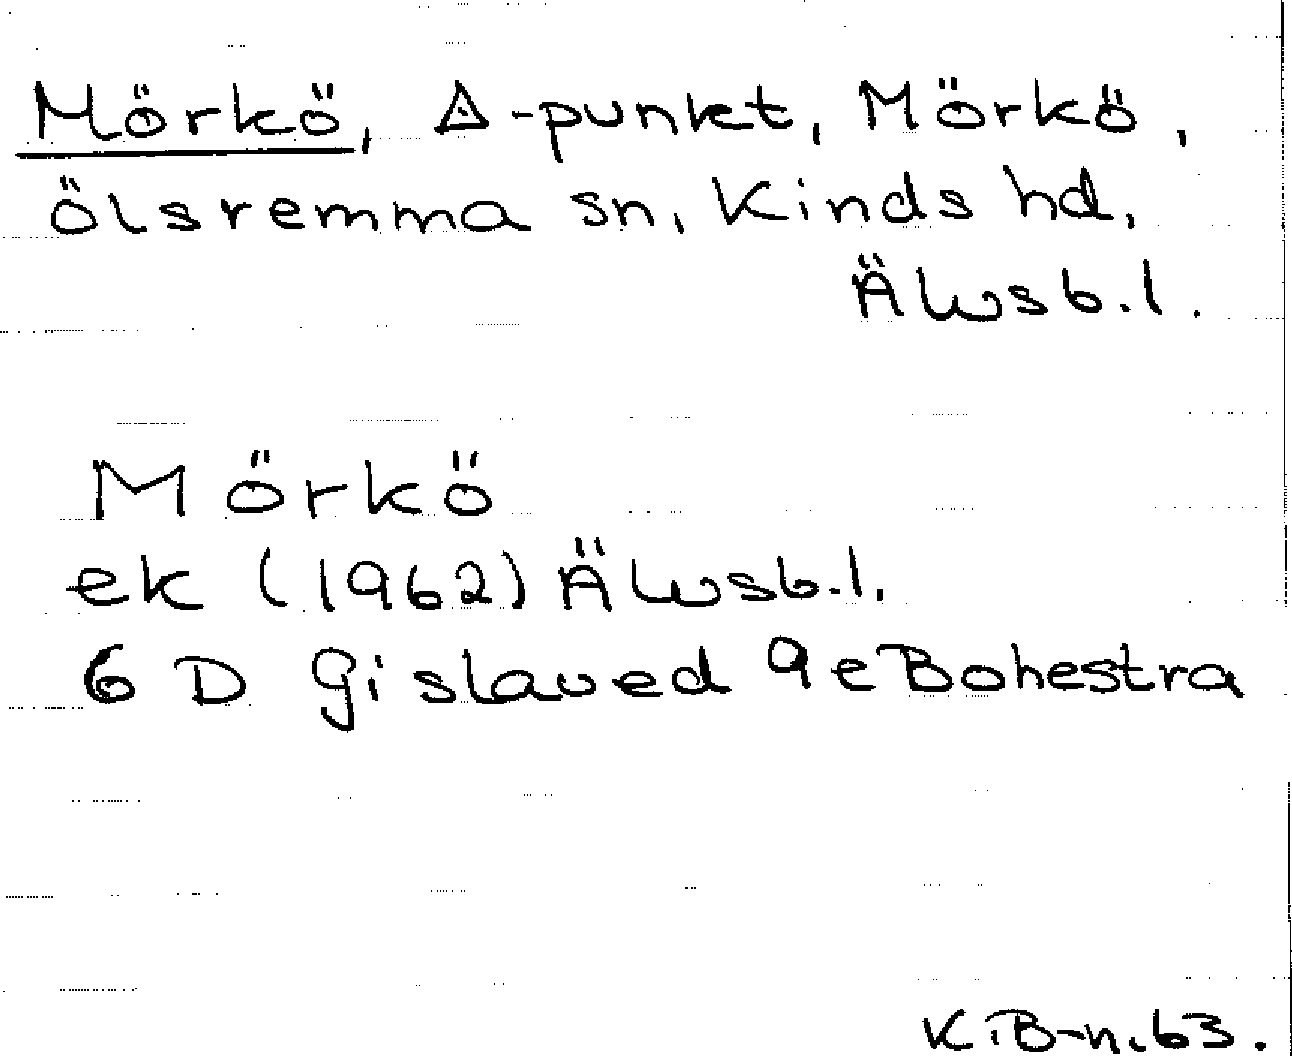 Mörkö, △-punkt, Mörkö,
Ölsremma sn, Kinds hd,
Älvsb. l.
Mörkö
ek (1962) Älvsb. l.
6 D Gislaved 9e Bohestra
K.B-n. 63.